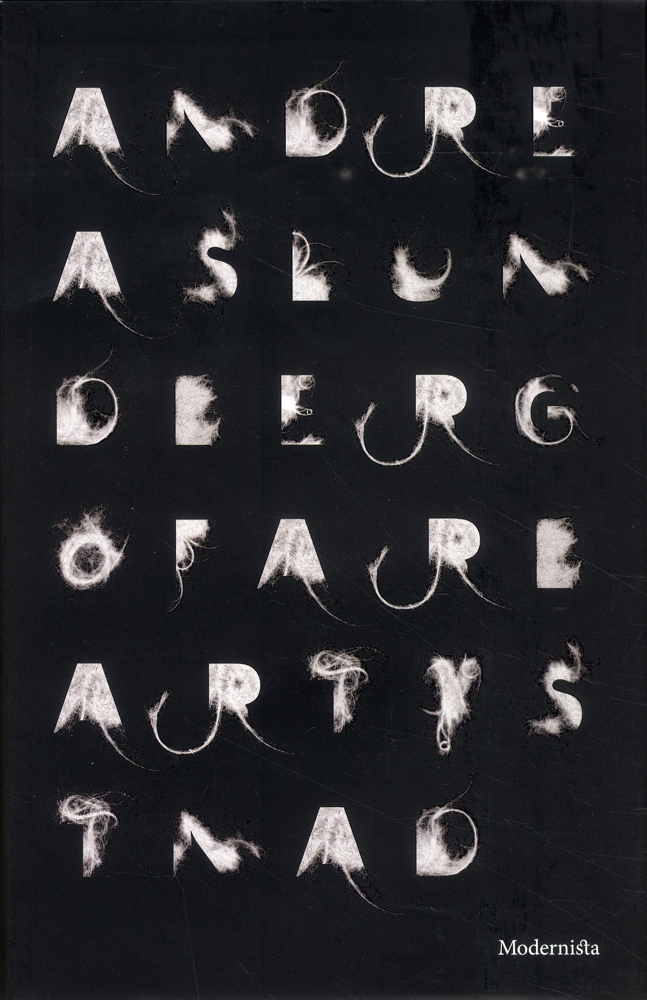 ANDRE
ASLUN
DBERG
OFARB
ARTYS
TNAD
Modernista